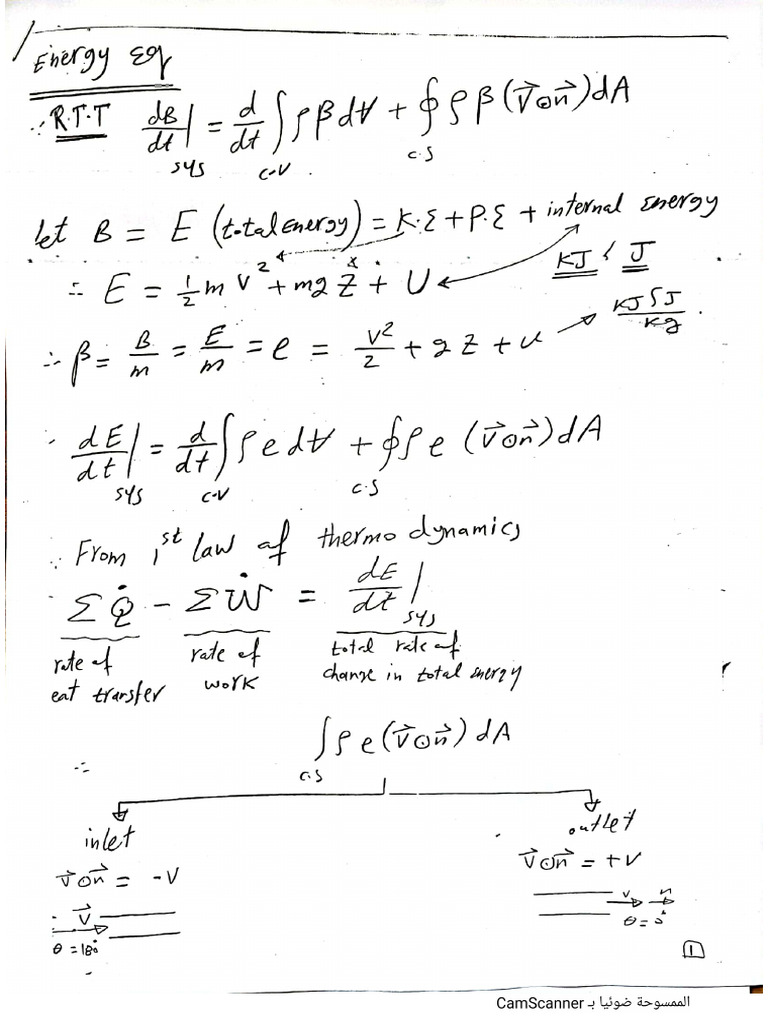 Energy Eq
∴ R.T.T dB/dt|sys = d/dt ∫c.v ρβ dV + ∮c.s ρβ (V⃗⊙n⃗) dA
let B = E (total energy) = K.E + P.E + internal energy
KJ , J
∴ E = ½ m V² + mg Z + U
∴ β = B/m = E/m = e = V²/2 + gZ + u
KJ , J / Kg
dE/dt|sys = d/dt ∫c.v ρ e dV + ∮c.s ρ e (V⃗⊙n⃗) dA
∵ From 1st law of thermo dynamics
ΣQ̇ - ΣẆ = dE/dt|sys
rate of eat transfer
rate of work
total rate of change in total energy
∴ ∫c.s ρ e (V⃗⊙n⃗) dA
inlet
outlet
V⃗⊙n⃗ = -V
V⃗⊙n⃗ = +V
V⃗
V n
θ = 180°
θ = 0°
1
الممسوحة ضوئيا بـ CamScanner